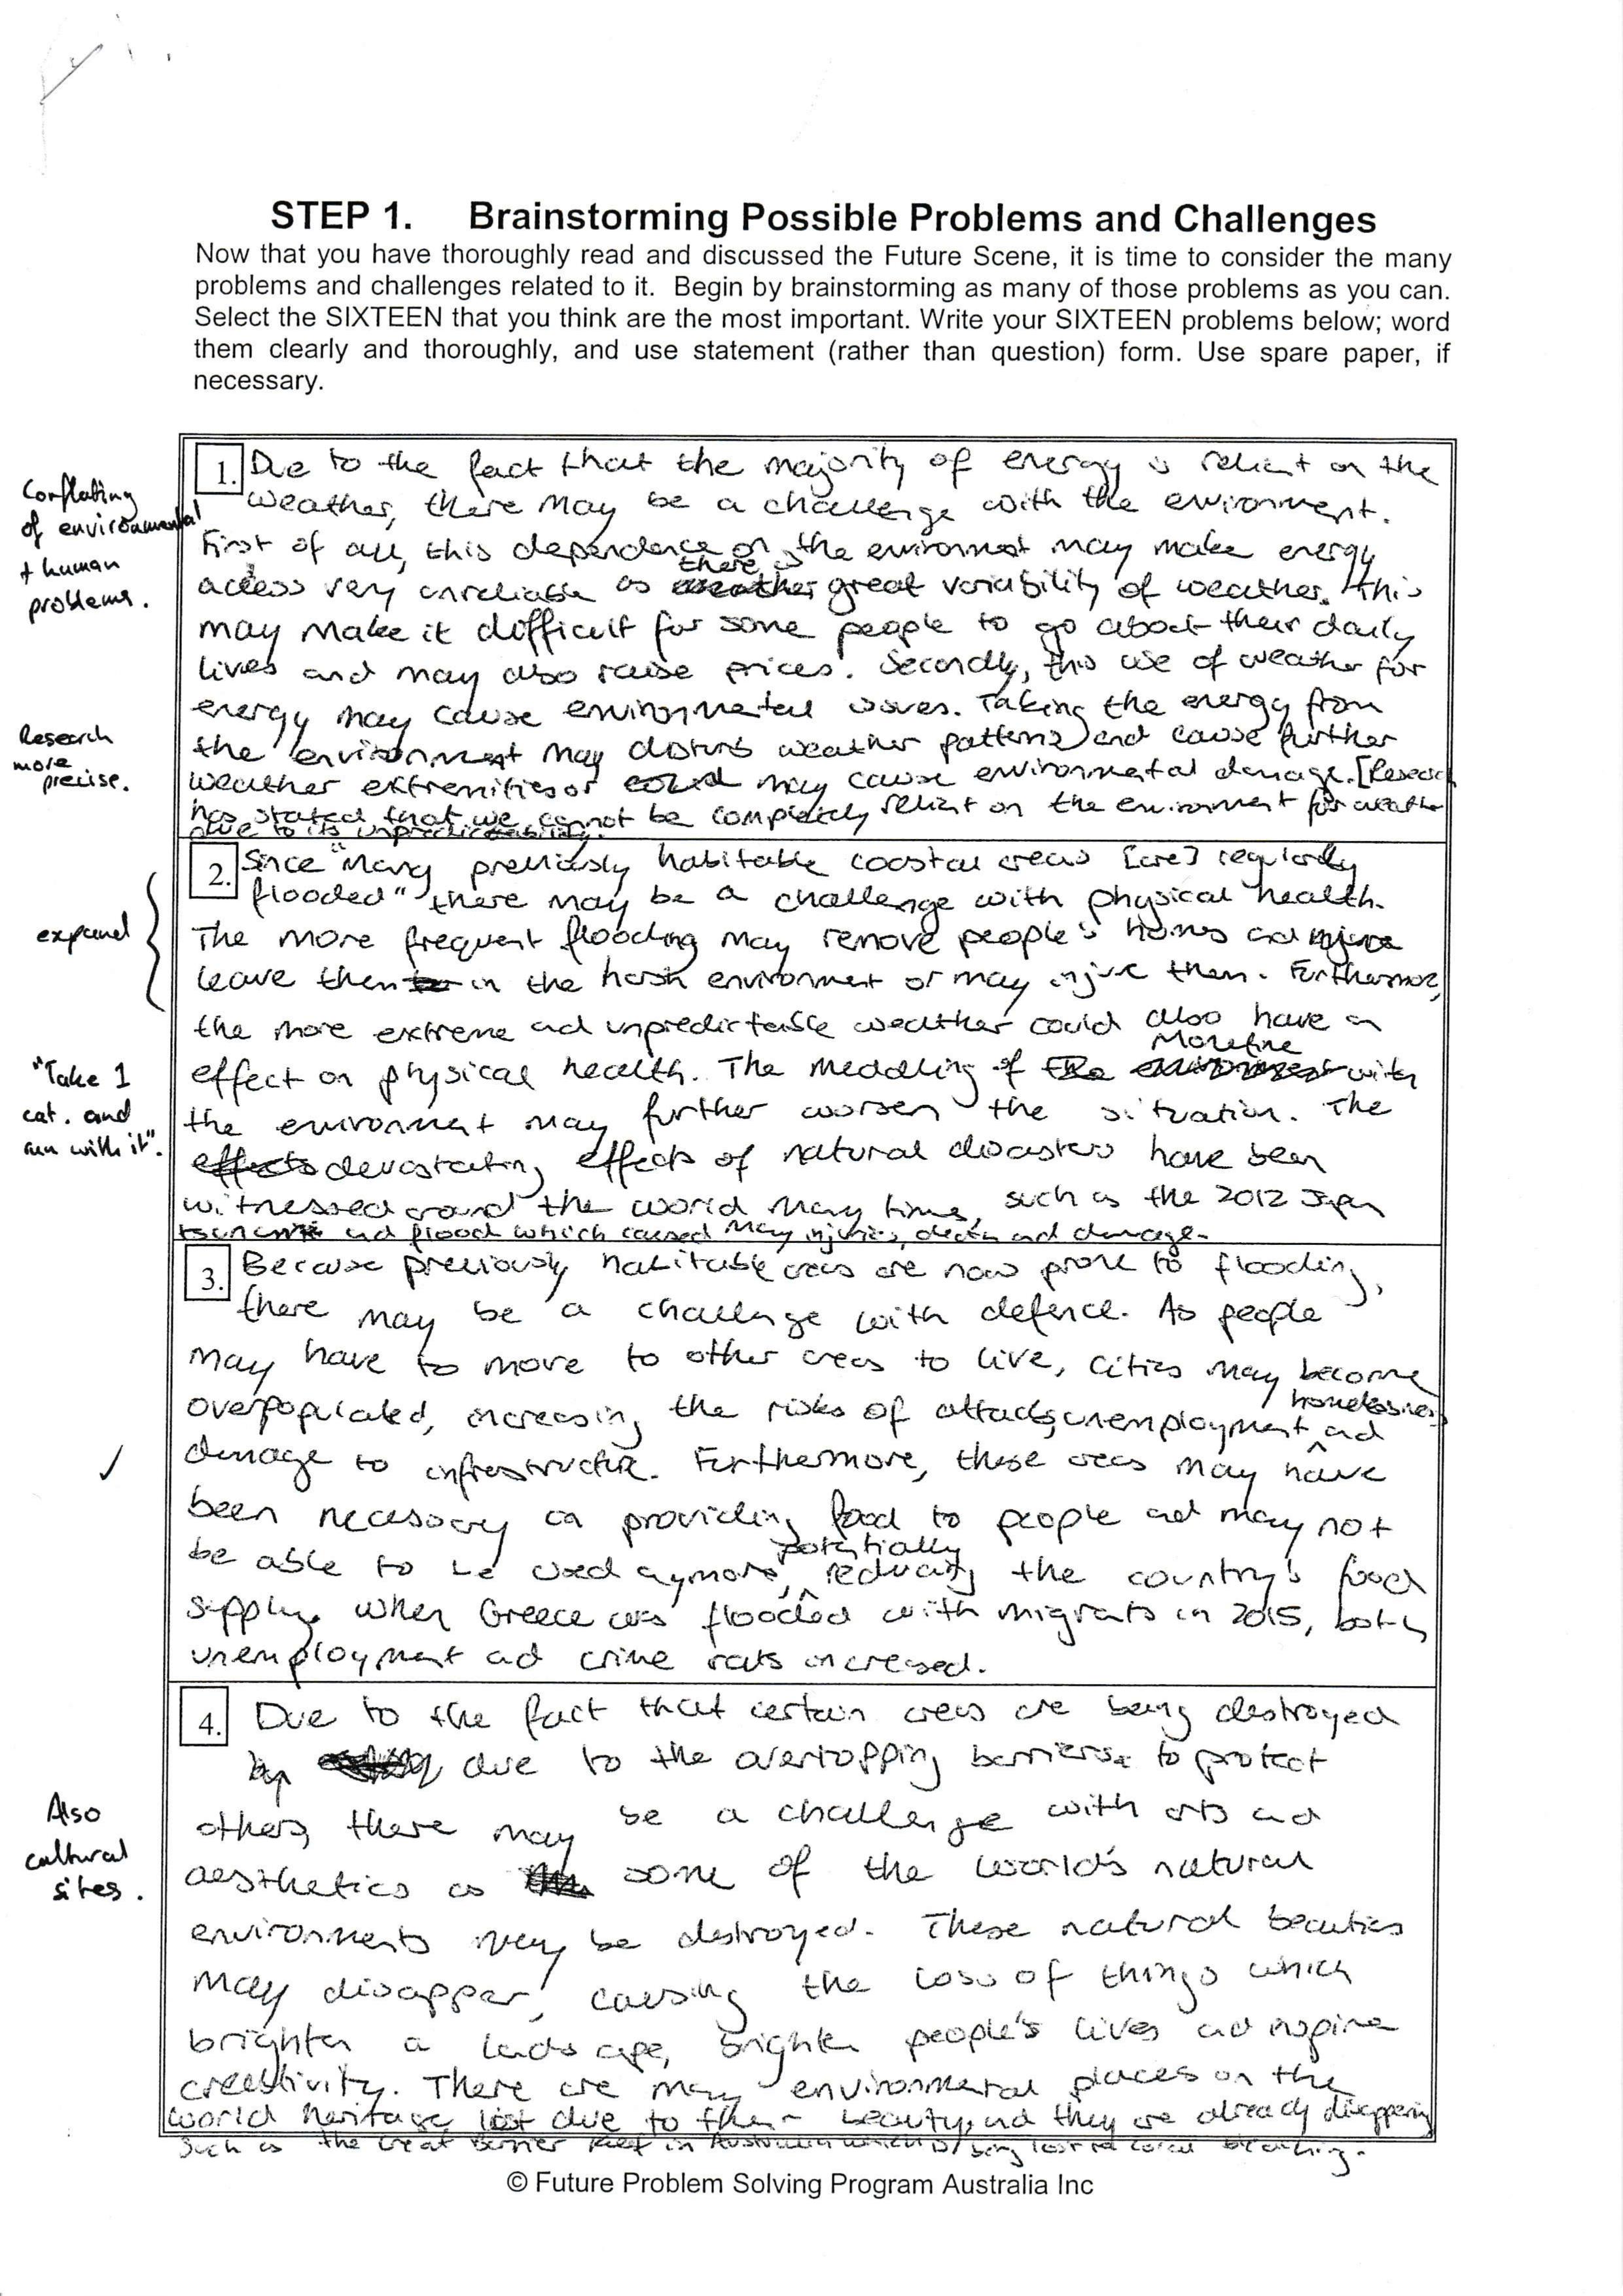 STEP 1. Brainstorming Possible Problems and Challenges
Now that you have thoroughly read and discussed the Future Scene, it is time to consider the many
problems and challenges related to it. Begin by brainstorming as many of those problems as you can.
Select the SIXTEEN that you think are the most important. Write your SIXTEEN problems below; word
them clearly and thoroughly, and use statement (rather than question) form. Use spare paper, if
necessary.
Conflating
of environmental
+ human
problems.
Research
more
precise.
1. Due to the fact that the majority of energy is reliant on the
weather, there may be a challenge with the environment.
First of all, this dependence on the environment may make energy
access very unreliable as there is great variability of weather. This
may make it difficult for some people to go about their daily
lives and may also raise prices. Secondly, this use of weather for
energy may cause environmental issues. Taking the energy from
the environment may disturb weather patterns and cause further
weather extremities or may cause environmental damage. [Research
has stated that we cannot be completely reliant on the environment for weather
due to its unpredictability.
expand
"Take 1
cat. and
run with it".
2. Since "Many previously habitable coastal areas [are] regularly
flooded" there may be a challenge with physical health.
The more frequent flooding may remove people's homes and
leave them in the harsh environment or may injure them. Furthermore,
the more extreme and unpredictable weather could also have an
effect on physical health. The meddling of Monetine with
the environment may further worsen the situation. The
devastating effects of natural disasters have been
witnessed around the world many times, such as the 2012 Japan
tsunami and flood which caused many injuries, death and damage.
✓
3. Because previously habitable areas are now prone to flooding,
there may be a challenge with defence. As people
may have to move to other areas to live, cities may become
overpopulated, increasing the risks of attacks, unemployment, homelessness and
damage to infrastructure. Furthermore, these areas may have
been necessary in providing food to people and may not
be able to be used anymore, potentially reducing the country's food
supply. When Greece was flooded with migrants in 2015, both
unemployment and crime rates increased.
Also
cultural
sites.
4. Due to the fact that certain areas are being destroyed
by due to the overtopping barriers to protect
others, there may be a challenge with arts and
aesthetics as some of the world's natural
environments may be destroyed. These natural beauties
may disappear, causing the loss of things which
brighten a landscape, brighten people's lives and inspire
creativity. There are many environmental places on the
world heritage list due to their beauty, and they are already disappearing
such as the Great Barrier Reef in Australia which is being lost to coral bleaching.
© Future Problem Solving Program Australia Inc